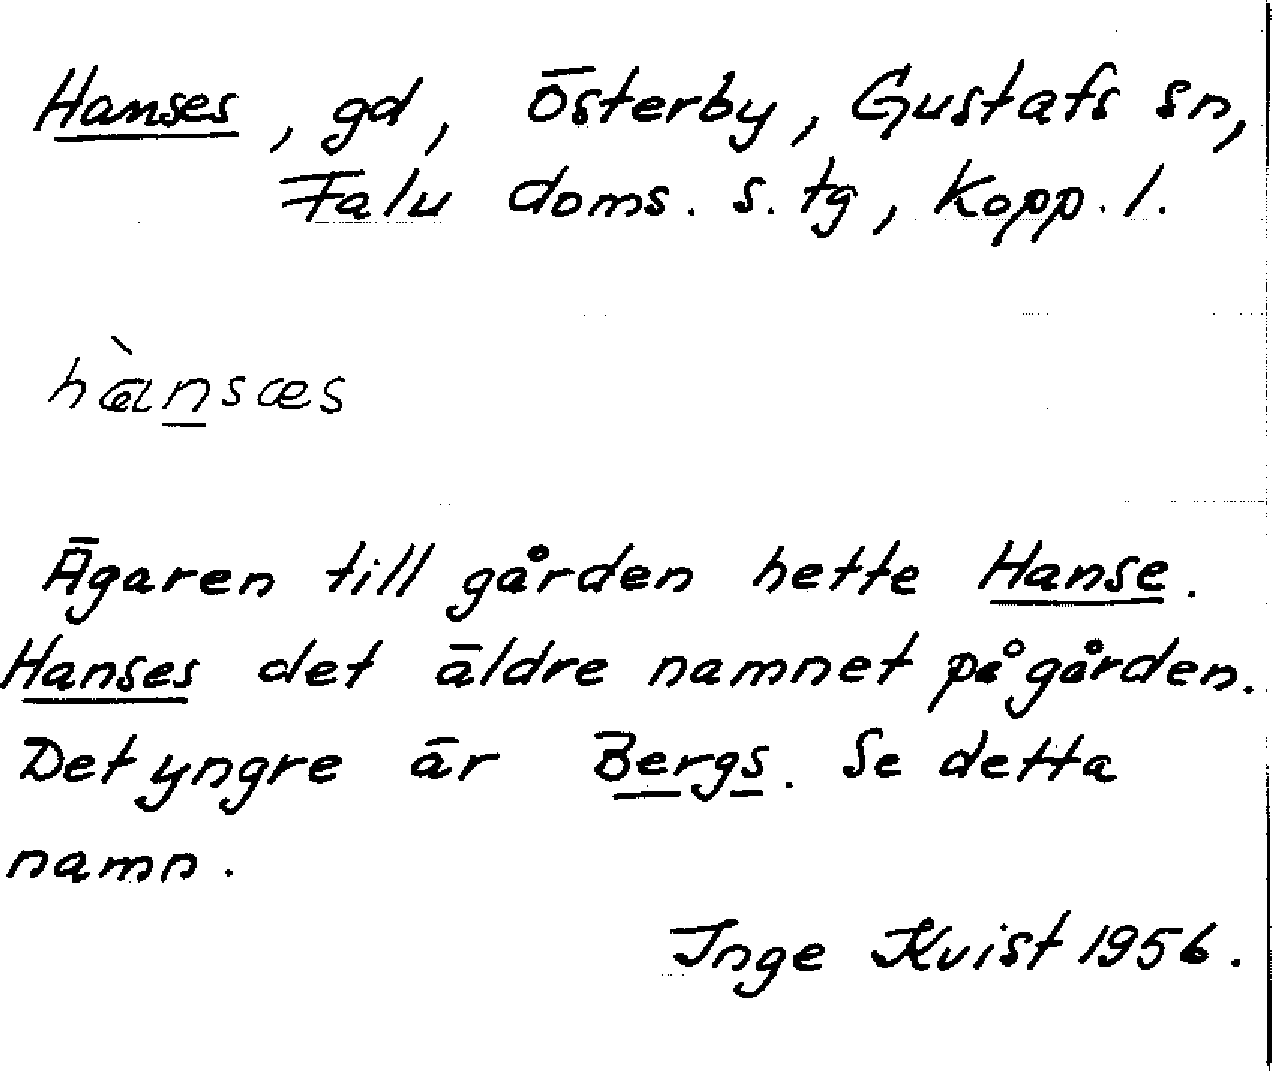 Hanses, gd, Österby, Gustafs sn,
Falu doms. s. tg, Kopp. l.
hànsæs
Ägaren till gården hette Hanse.
Hanses det äldre namnet på gården.
Det yngre är Bergs. Se detta
namn.
Inge Kvist 1956.